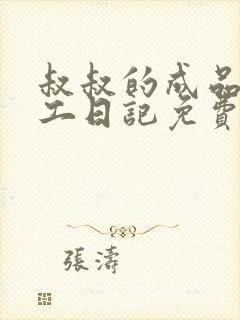 叔叔的成品
工日記免費
張濤